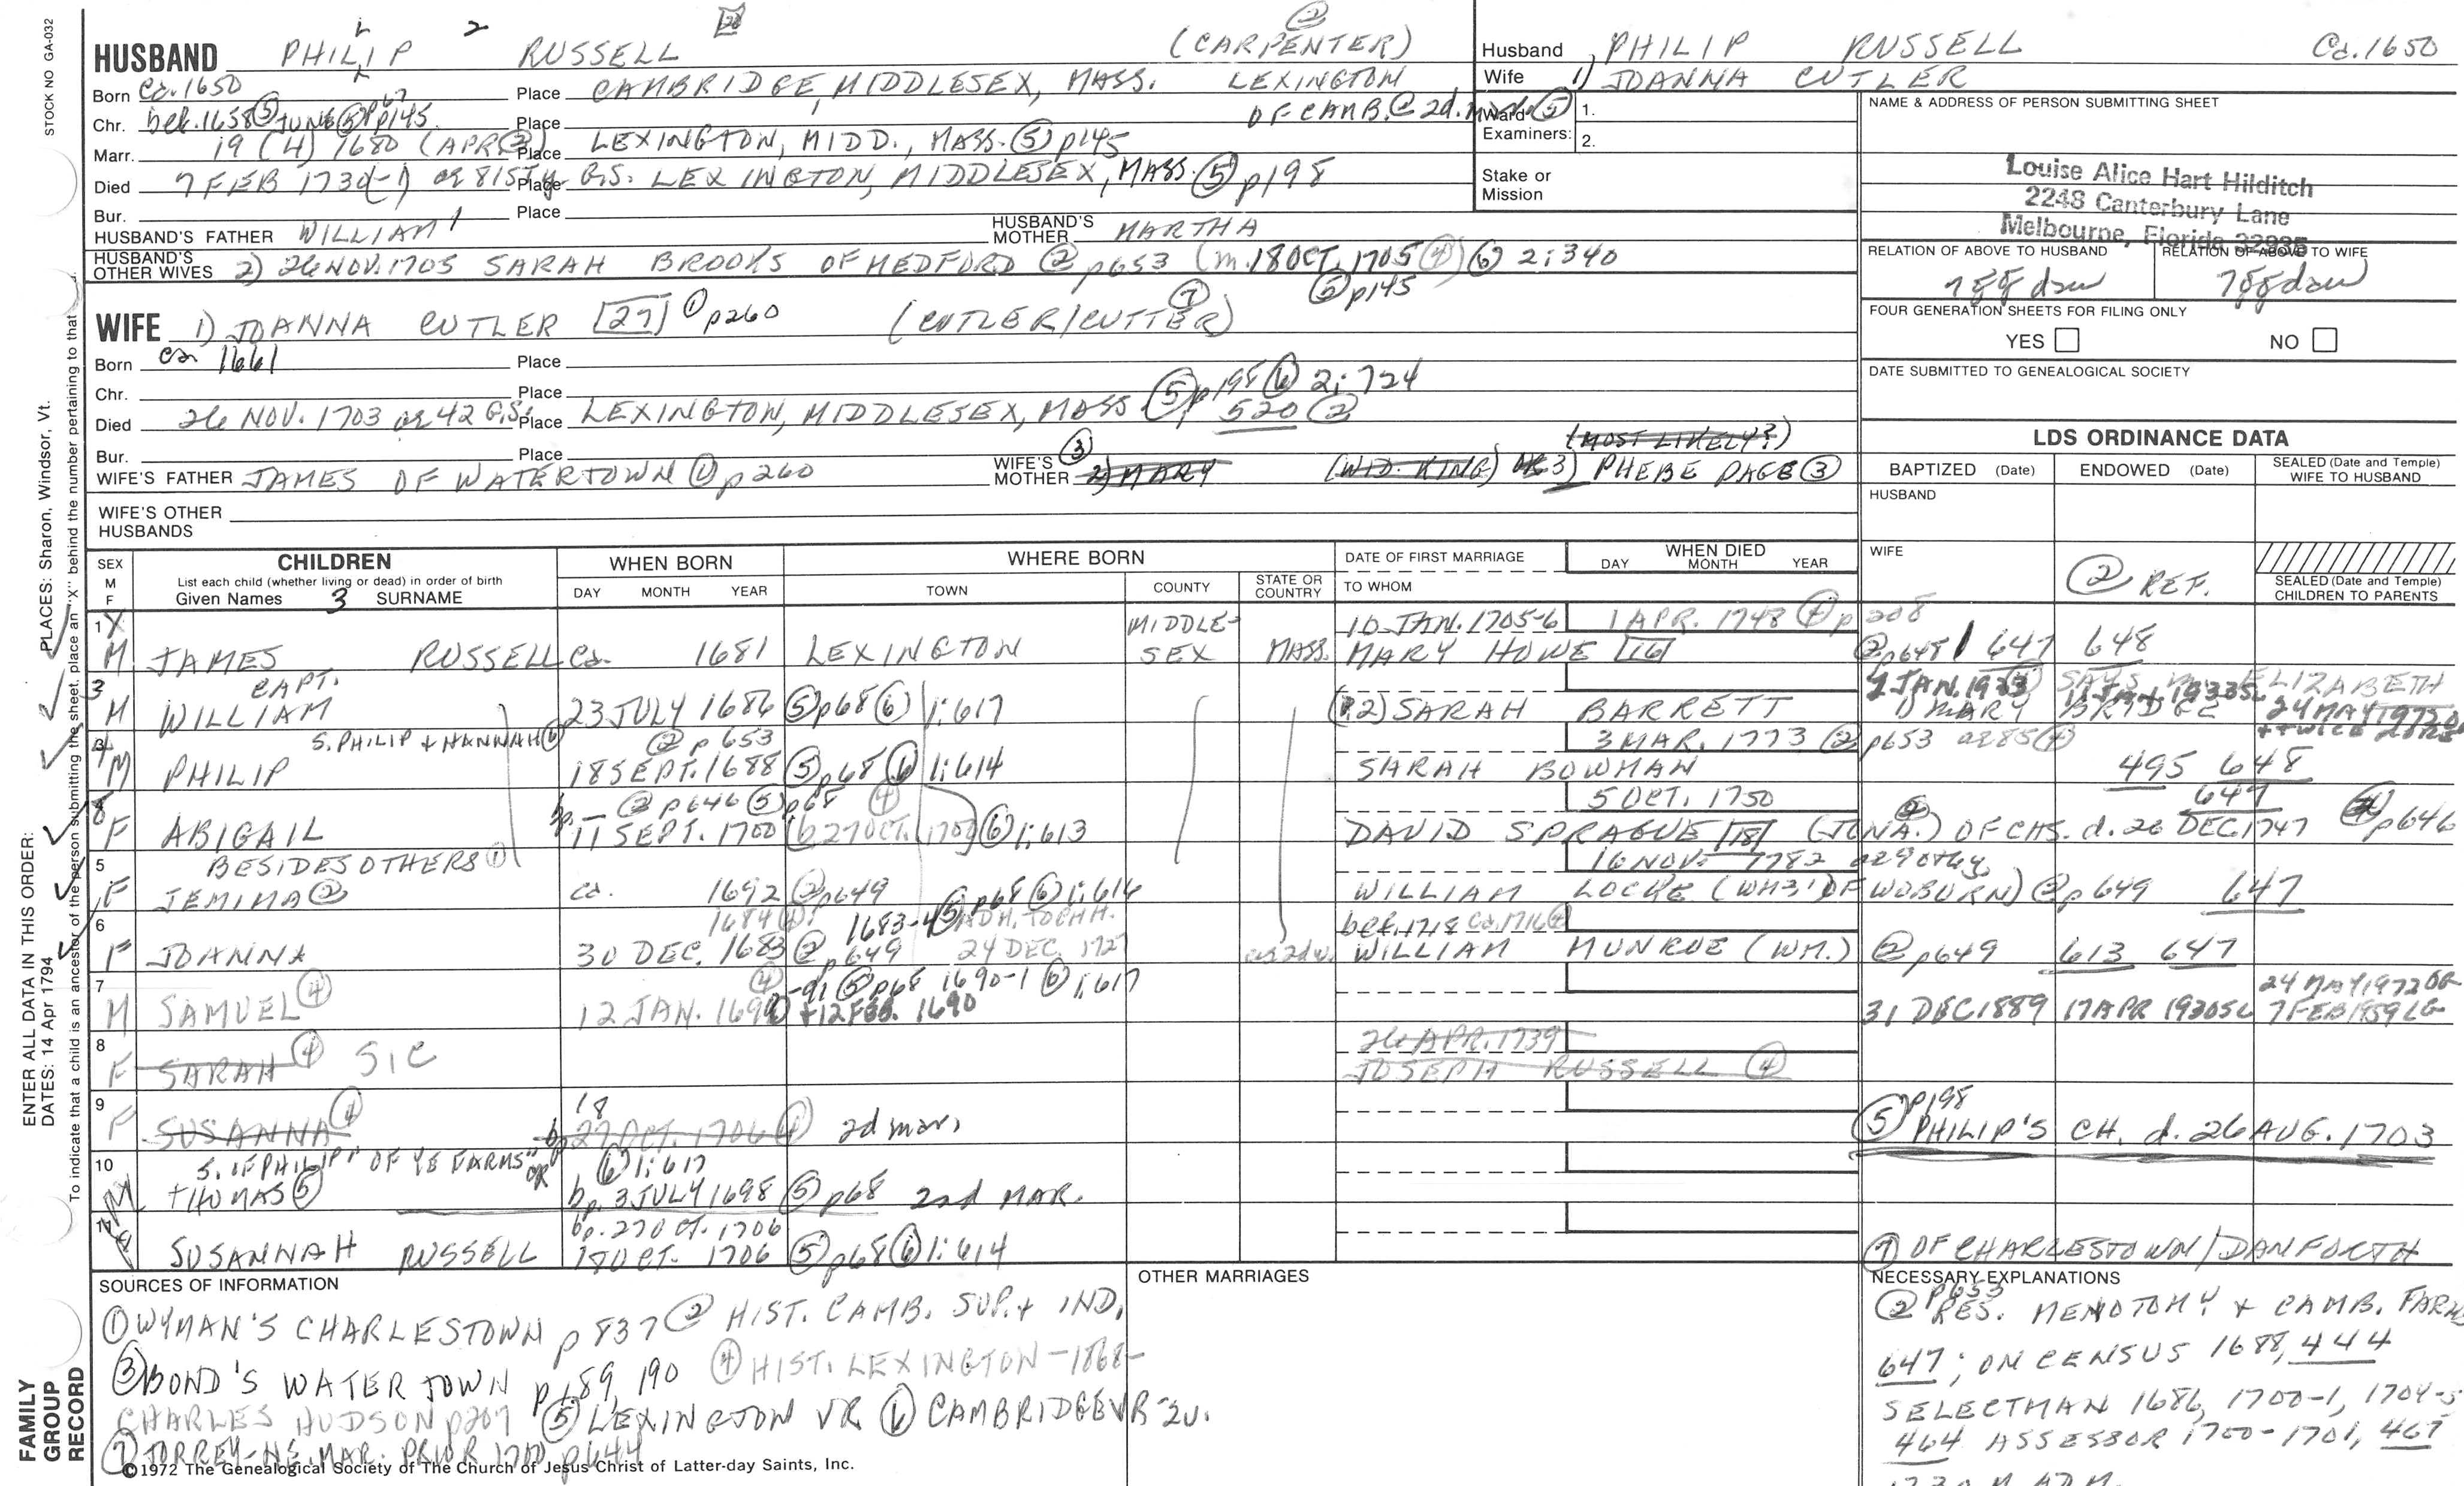 STOCK NO GA-032
HUSBAND PHILIP 2 RUSSELL 26 (CARPENTER) ②
Born Ca. 1650 Place CAMBRIDGE, MIDDLESEX, MASS. LEXINGTON
Chr. bef. 1658 ⑤ JUNE ⑥ p145 Place OF CAMB. @ 2d. m ⑤
Marr. 19 (4) 1680 (APR ③) Place LEXINGTON, MIDD., MASS. ⑤ p145
Died 7 FEB 1730(-1) ae 81ST Y. Place G.S. LEXINGTON, MIDDLESEX, MASS. ⑤ p198
Bur. Place
HUSBAND'S FATHER WILLIAM 1 HUSBAND'S MOTHER MARTHA
HUSBAND'S OTHER WIVES 2) 26 NOV. 1705 SARAH BROOKS OF MEDFORD ② p653 (m. 18 OCT. 1705 ④) ⑥ 2:340
⑤ p145
WIFE 1) JOANNA CUTLER 27 ① p260 (CUTLER/CUTTER) ⑦
Born ca 1661 Place
Chr. Place
Died 26 NOV. 1703 ae 42 G.S. Place LEXINGTON, MIDDLESEX, MASS ⑤ p198 ⑥ 2:724
520 ②
Bur. Place
WIFE'S FATHER JAMES OF WATERTOWN ① p260 WIFE'S MOTHER ③ 2) MARY (WID. KING) OR 3) PHEBE PAGE ③
(MOST LIKELY?)
WIFE'S OTHER HUSBANDS
Husband PHILIP RUSSELL Ca. 1650
Wife 1) JOANNA CUTLER
Ward 1.
Examiners: 2.
Stake or Mission
NAME & ADDRESS OF PERSON SUBMITTING SHEET
Louise Alice Hart Hilditch
2248 Canterbury Lane
Melbourne, Florida 32935
RELATION OF ABOVE TO HUSBAND RELATION OF ABOVE TO WIFE
7gg dau 7gg dau
FOUR GENERATION SHEETS FOR FILING ONLY
YES NO
DATE SUBMITTED TO GENEALOGICAL SOCIETY
LDS ORDINANCE DATA
BAPTIZED (Date) ENDOWED (Date) SEALED (Date and Temple) WIFE TO HUSBAND
HUSBAND
WIFE
② REF.
SEALED (Date and Temple) CHILDREN TO PARENTS
SEX M F CHILDREN WHEN BORN WHERE BORN DATE OF FIRST MARRIAGE WHEN DIED
List each child (whether living or dead) in order of birth
Given Names 3 SURNAME DAY MONTH YEAR TOWN COUNTY STATE OR COUNTRY TO WHOM DAY MONTH YEAR
1 X MIDDLE- 10 JAN. 1705-6 1 APR. 1748 ④ p208
M JAMES RUSSELL Ca. 1681 LEXINGTON SEX MASS. MARY HOWE 16 ② p648 647 648
3 CAPT.
M WILLIAM 23 JULY 1686 ⑤ p68 ⑥ 1:617 (1,2) SARAH BARRETT 1) MARY BRIDGE
S. PHILIP + HANNAH ⑥ ② p653 3 MAR. 1773 ② p653 ae 85 ④
M PHILIP 18 SEPT. 1688 ⑤ p68 ⑥ 1:614 SARAH BOWMAN 495 648
bp — ② p646 ⑤ p68 ④ 5 OCT. 1750 647
F ABIGAIL 11 SEPT. 1700 (b 27 OCT. 1700) ⑥ 1:613 DAVID SPRAGUE 18 (JONA.) OF CHS. d. 26 DEC. 1747 p646
5 BESIDES OTHERS ① 16 NOV. 1782 ae 90th y.
F JEMIMA ② ca. 1692 ② p649 WILLIAM LOCKE (WM3) OF WOBURN) ② p649 647
6 1684 ④ 1683-4 ⑤ p68 ⑥ 1:614 bef. 1718 ca. 1716 ④
F JOANNA 30 DEC. 1683 ② p649 24 DEC. 1727 as 2d w. WILLIAM MUNROE (WM.) ② p649 613 647
7 ④ -91 ⑤ p68 1690-1 ⑥ 1:617 24 MAY 1972
M SAMUEL ④ 12 JAN. 1690 + 12 FEB. 1690 31 DEC 1889 17 APR 1930SL 7 FEB 1959 LG
8 26 APR. 1739
F SARAH ④ SIC JOSEPH RUSSELL ④
9 18 p198
F SUSANNA ④ bp 27 OCT. 1706 ④ 2d mar. ⑤ PHILIP'S CH. d. 26 AUG. 1703
10 S. OF PHILIP "OF YE FARMS" OR ⑥ 1:617
M THOMAS ⑤ bp. 3 JULY 1698 ⑤ p68 2nd MAR.
11 bp. 27 OCT. 1706
SUSANNAH RUSSELL 18 OCT. 1706 ⑤ p68 ⑥ 1:614 ⑦ OF CHARLESTOWN/DANFORTH
SOURCES OF INFORMATION
① WYMAN'S CHARLESTOWN p 837 ② HIST. CAMB. SUP. + IND.
③ BOND'S WATERTOWN p 189, 190 ④ HIST. LEXINGTON - 1868 -
CHARLES HUDSON p207 ⑤ LEXINGTON VR ⑥ CAMBRIDGE VR 2v.
⑦ TORREY - N.E. MAR. PRIOR 1700 p 644
©1972 The Genealogical Society of The Church of Jesus Christ of Latter-day Saints, Inc.
OTHER MARRIAGES
NECESSARY EXPLANATIONS
② p653 RES. MENOTOMY + CAMB. FARMS
647; ON CENSUS 1688, 444
SELECTMAN 1686, 1700-1, 1704-5
464 ASSESSOR 1700-1701, 467
ENTER ALL DATA IN THIS ORDER:
DATES: 14 Apr 1794 PLACES: Sharon, Windsor, Vt.
To indicate that a child is an ancestor of the person submitting the sheet, place an "X" behind the number pertaining to that
FAMILY GROUP RECORD